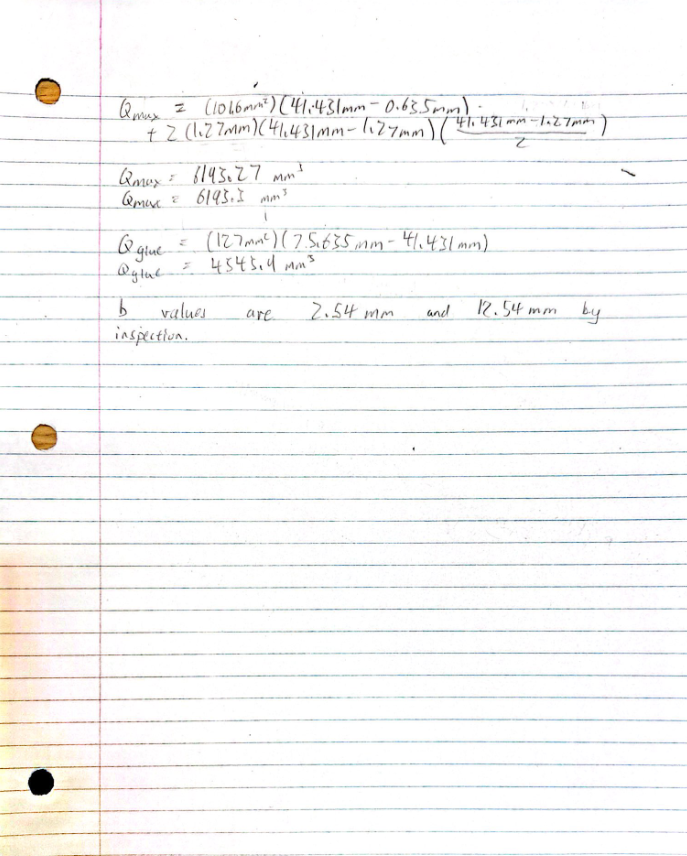 Qmax = (101.6mm²)(41.431mm - 0.635mm)
+ 2(1.27mm)(41.431mm - 1.27mm)((41.431mm - 1.27mm)/2)
Qmax = 6193.27 mm³
Qmax = 6193.3 mm³
Qglue = (127mm²)(75.635mm - 41.431mm)
Qglue = 4343.9 mm³
b values are 2.54 mm and 12.54 mm by
inspection.